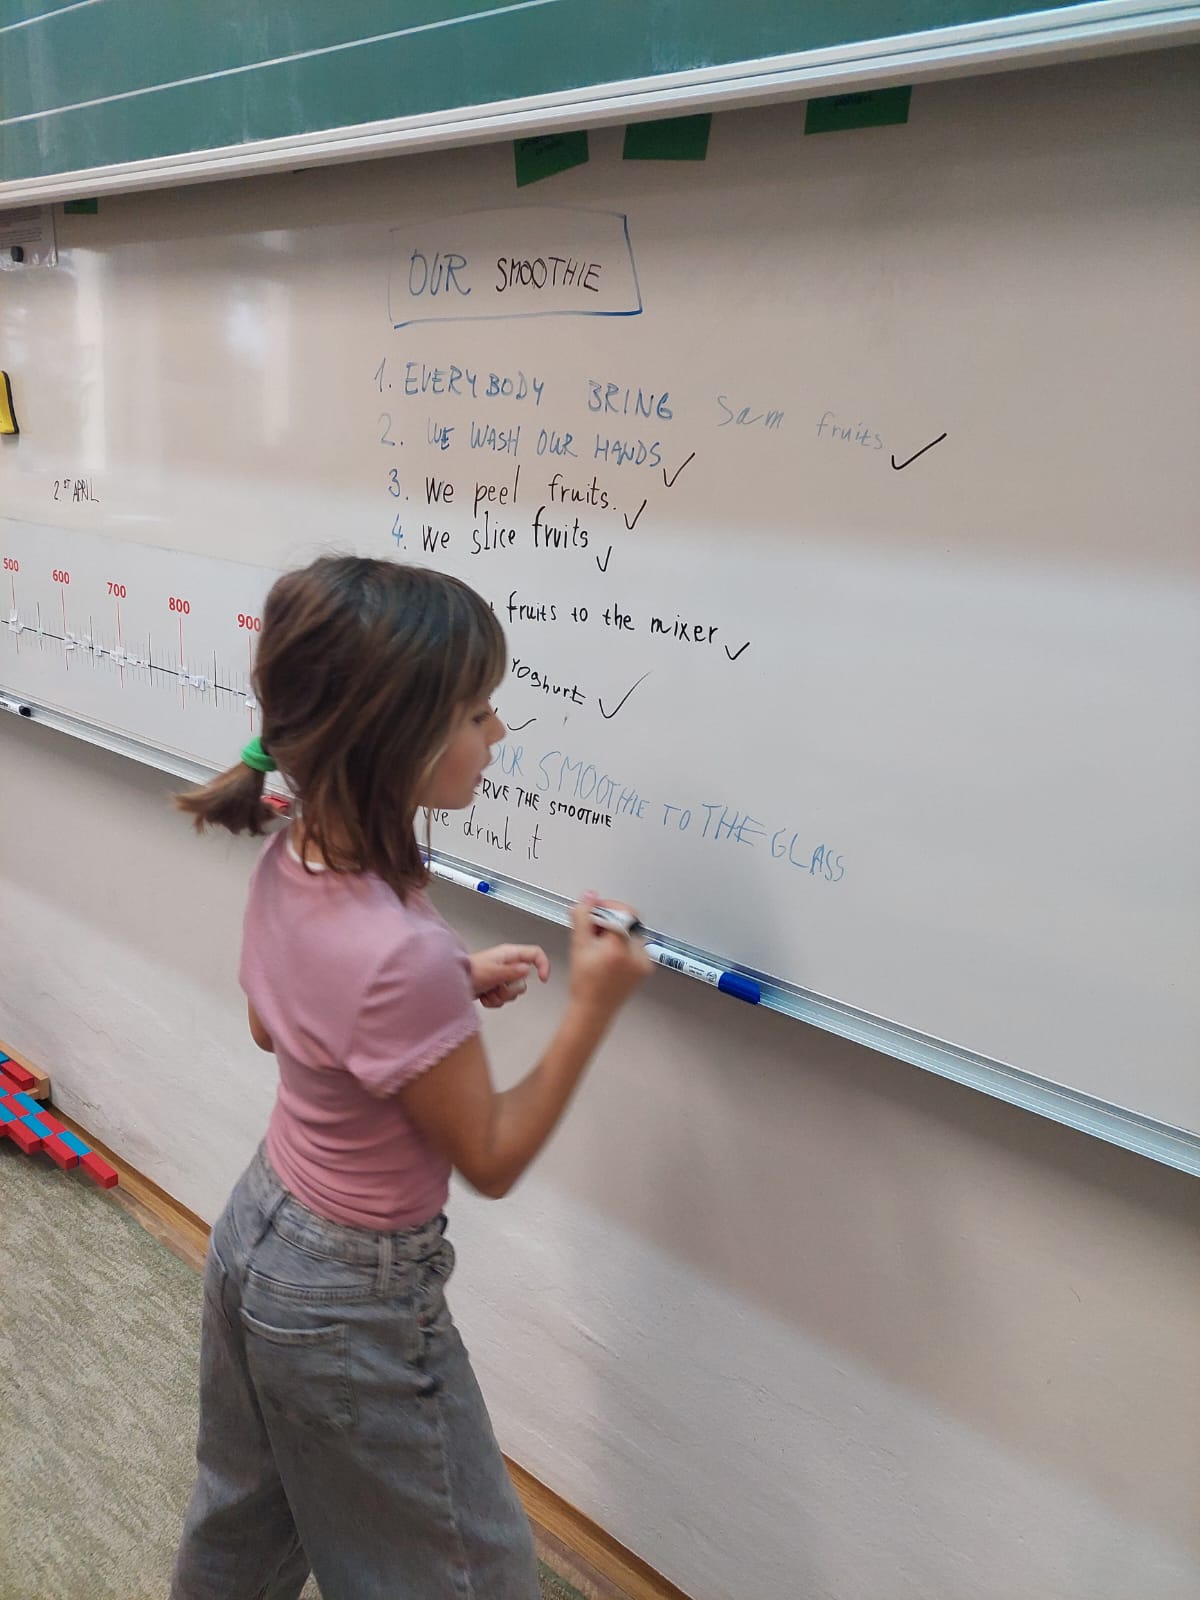 OUR SMOOTHIE
1. EVERYBODY BRING Sam fruits ✓
2. WE WASH OUR HANDS ✓
3. We peel fruits. ✓
4. We slice fruits ✓
fruits to the mixer ✓
Yoghurt ✓
✓
OUR SMOOTHIE TO THE GLASS
ERVE THE SMOOTHIE
We drink it
2.ST APRIL
500 600 700 800 900